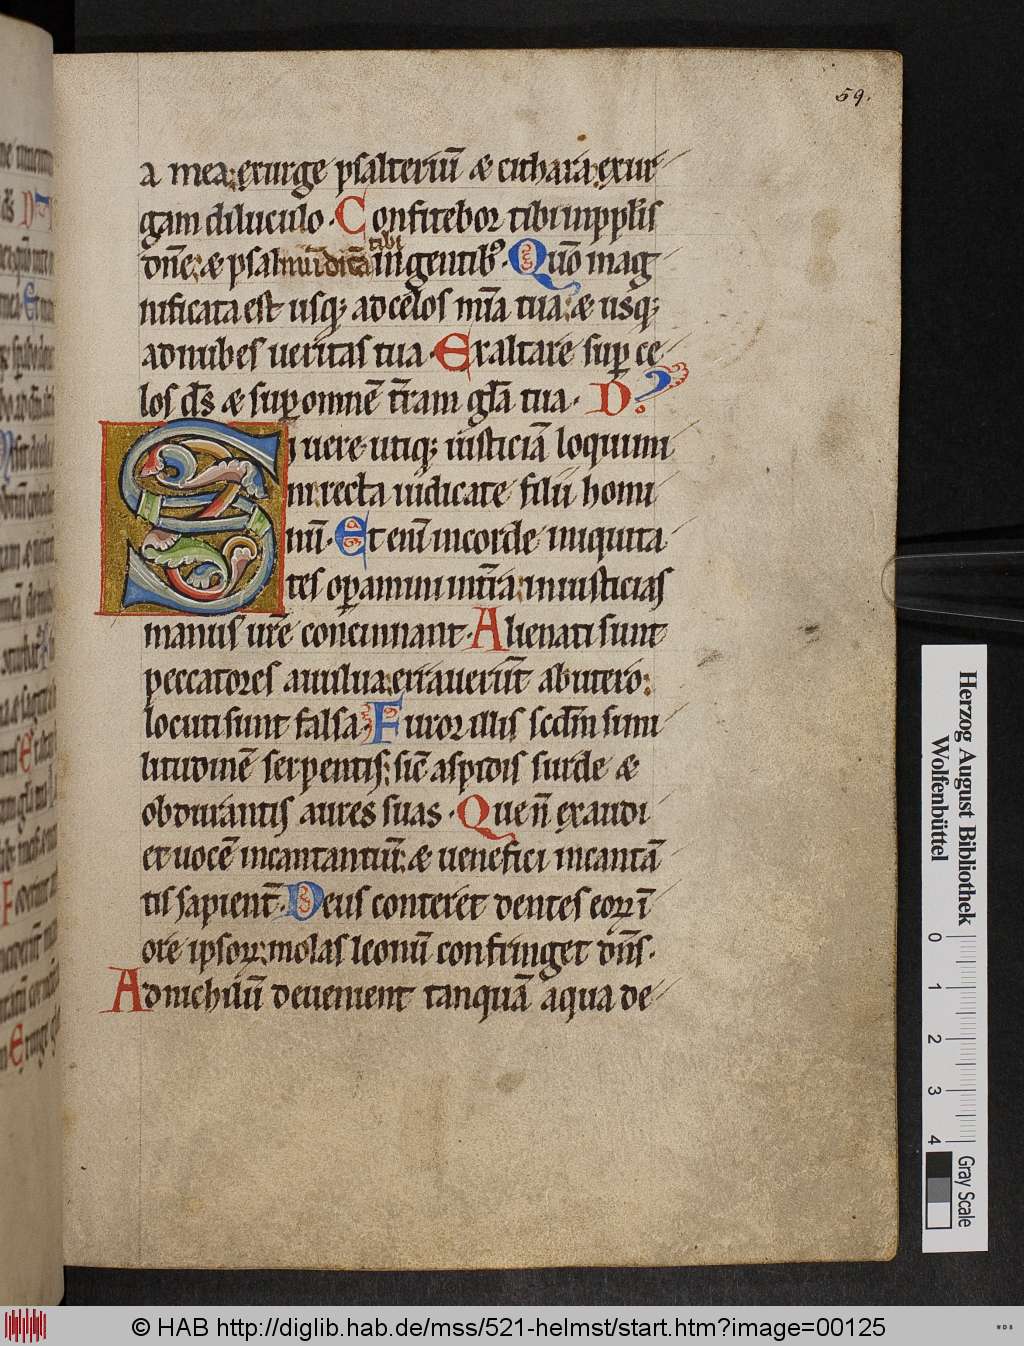 59.
a mea: exurge psalteriū æ cithara: exur
gam diluculo. Confitebor tibi in pplis
dn̄e: æ psalmū dicā tibi in gentib⁹. Qūo mag
nificata est usq; ad celos mīa tua: æ usq;
ad nubes ueritas tua. Exaltare sup ce
los ds̄ æ sup omnē t̄ram gl̄a tua. D?
Si uere utiq; iusticiā loquimi
ni: recta iudicate filii homi
nū. Et eni in corde iniquita
tes opamini in t̄ra: iniusticias
manus ur̄e concinnant. Alienati sunt
peccatores a uulua: errauerūt ab utero:
locuti sunt falsa. Furor illis scdm̄ simi
litudinē serpentis: sic̄ aspidis surde æ
obdurantis aures suas. Que n̄ exaudi
et uocē incantantiū: æ uenefici incantā
tis sapient̄. Deus conteret dentes eoꝝ ī
ore ipsoꝝ: molas leonū confringet dn̄s.
Ad nichilū deuenient tanquā aqua de
Herzog August Bibliothek
Wolfenbüttel
0 1 2 3 4
Gray Scale
© HAB http://diglib.hab.de/mss/521-helmst/start.htm?image=00125